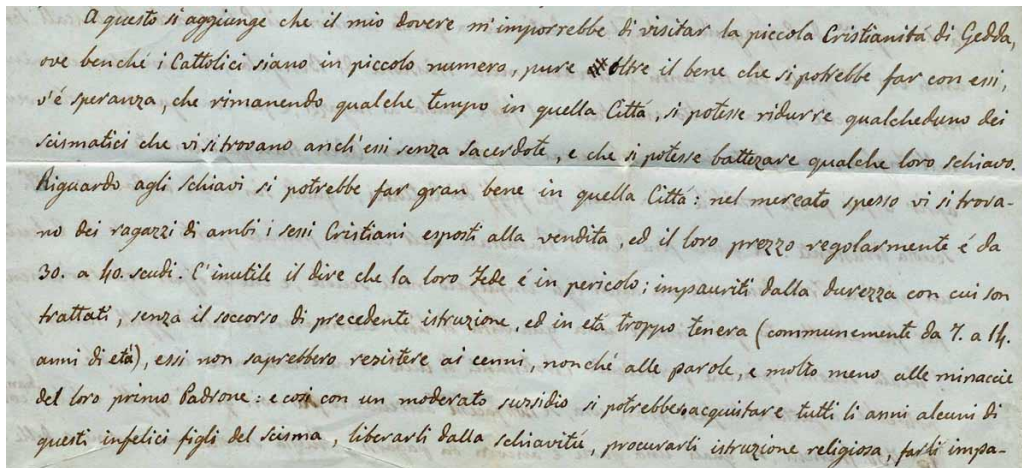 A questo si aggiunge che il mio dovere m'imporrebbe di visitar la piccola Cristianitá di Gedda,
ove benché i Cattolici siano in piccolo numero, pure oltre il bene che si potrebbe far con essi,
v'é speranza, che rimanendo qualche tempo in quella Cittá, si potesse ridurre qualcheduno dei
scismatici che vi si trovano anch'essi senza sacerdote, e che si potesse battezare qualche loro schiavo.
Riguardo agli schiavi si potrebbe far gran bene in quella Cittá: nel mercato spesso vi si trova-
no dei ragazzi di ambi i sessi Cristiani esposti alla vendita, ed il loro prezzo regolarmente é da
30. a 40. scudi. E' inutile il dire che la loro Fede é in pericolo; impauriti dalla durezza con cui son
trattati, senza il soccorso di precedente istruzione, ed in etá troppo tenera (communemente da 7. a 14.
anni di etá), essi non saprebbero resistere ai cenni, nonché alle parole, e molto meno alle minaccie
del loro primo Padrone: e cosi con un moderato sussidio si potrebbero acquistare tutti li anni alcuni di
questi infelici figli del scisma, liberarli dalla schiavitú, procurarli istruzione religiosa, farli impa-